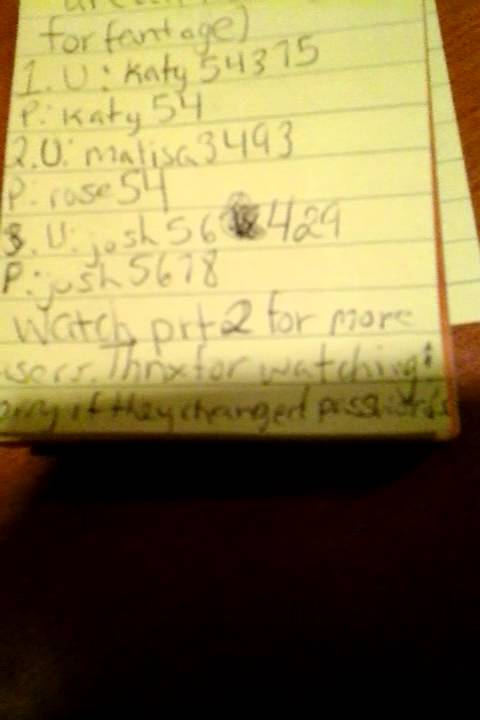 for fantage)
1. U: Katy 54375
P: Katy 54
2. U: malisa3493
P: rose54
3. U: josh 56 429
P: josh5678
Watch prt 2 for more
users. Thnx for watching!
sorry if they changed passwords